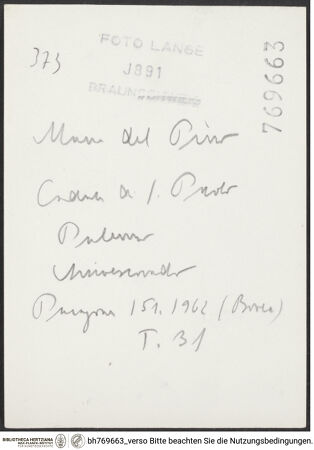 373
FOTO LANGE
J891
BRAUNSCHWEIG
769663
Marco del Pino
Caduta di S. Paolo
Palermo
Arcivescovado
Paragone 151. 1962 (Borea)
T. 31
BIBLIOTHECA HERTZIANA
MAX-PLANCK-INSTITUT
FÜR KUNSTGESCHICHTE
bh769663_verso Bitte beachten Sie die Nutzungsbedingungen.